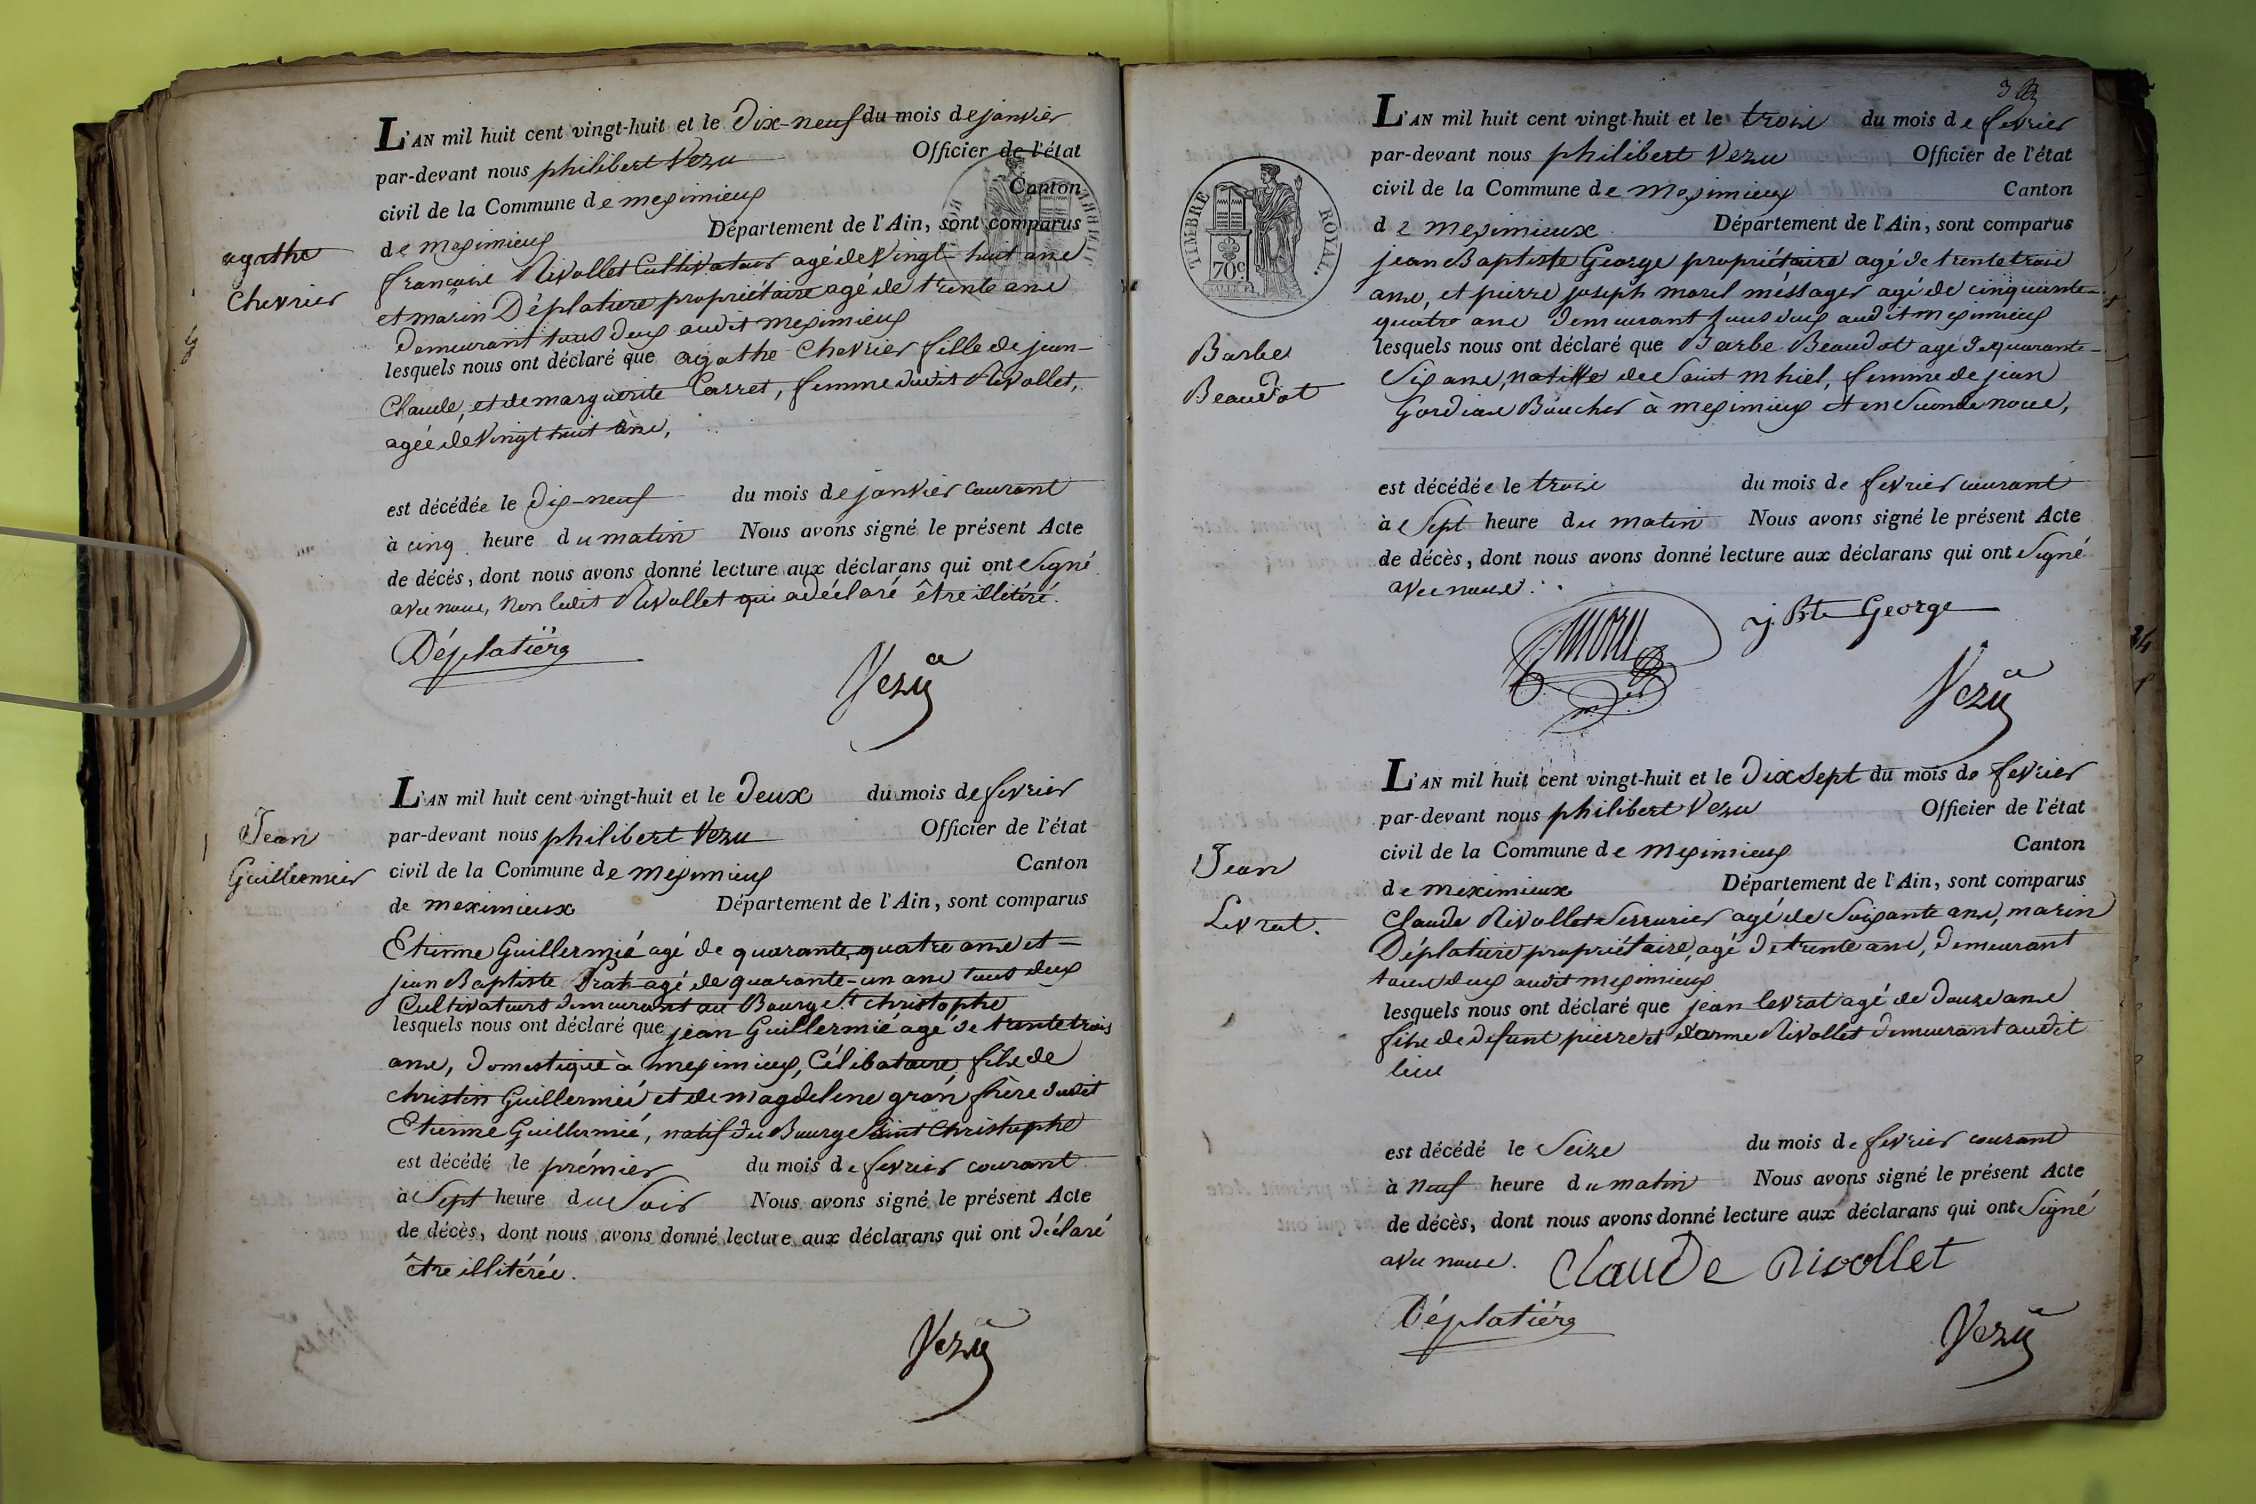 L'AN mil huit cent vingt-huit et le Dix-neuf du mois de janvier
par-devant nous philibert Vezu Officier de l'état
civil de la Commune de meximieux Canton
de meximieux Département de l'Ain, sont comparus
agathe
Chevrier
françois Rivollet Cultivateur agé de Vingt-huit ans
et marin Déplatiere propriétaire agé de trente ans
demeurant tous deux audit meximieux
lesquels nous ont déclaré que agathe Chevrier fille de jean-
Claude, et de marguerite Carret, femme dudit Rivollet,
agée de Vingt huit ans,
est décédée le dix-neuf du mois de janvier courant
à cinq heure du matin Nous avons signé le présent Acte
de décés, dont nous avons donné lecture aux déclarans qui ont Signé
avec nous, Non ledit Rivollet qui a déclaré être illitéré.
Déplatière
Vezu
L'AN mil huit cent vingt-huit et le Deux du mois de fevrier
par-devant nous philibert Vezu Officier de l'état
civil de la Commune de meximieux Canton
de meximieux Département de l'Ain, sont comparus
Jean
Guillermier
Etienne Guillermié agé de quarante-quatre ans et
jean Baptiste Prat agé de quarante-un ans tous deux
Cultivateurs demeurant au Bourg St christophe
lesquels nous ont déclaré que jean Guillermié agé de trente trois
ans, domestique à meximieux, Célibataire, fils de
christin Guillermié et de magdelene grán frère dudit
Etienne Guillermié, natif du Bourg Saint Christophe
est décédé le prémier du mois de fevrier courant
à Sept heure du Soir Nous avons signé le présent Acte
de décès, dont nous avons donné lecture aux déclarans qui ont déclaré
être illitérés.
Vezu
L'AN mil huit cent vingt-huit et le trois du mois de fevrier
par-devant nous philibert Vezu Officier de l'état
civil de la Commune de Meximieux Canton
de meximieux Département de l'Ain, sont comparus
TIMBRE ROYAL.
70c
Barbe
Beaudot
jean Baptiste George propriétaire agé de trente trois
ans, et pierre joseph morel méssager agé de cinquante-
quatre ans demeurant tous deux audit meximieux
lesquels nous ont déclaré que Barbe Beaudot agé de quarante-
Six ans, native de Saint mhiel, femme de jean
Gordian Boucher à meximieux et en Seconde noce,
est décédée le trois du mois de fevrier courant
à Sept heure du matin Nous avons signé le présent Acte
de décès, dont nous avons donné lecture aux déclarans qui ont Signé
avec nous.
j. Bte George
Vezu
L'AN mil huit cent vingt-huit et le Dix Sept du mois de fevrier
par-devant nous philibert Vezu Officier de l'état
civil de la Commune de meximieux Canton
de meximieux Département de l'Ain, sont comparus
Jean
Levrat.
Claude Rivollet Serrurier agé de Soixante ans, marin
Déplatiere propriétaire, agé de trente ans, demeurant
tous deux audit meximieux
lesquels nous ont déclaré que jean levrat agé de douze ans
fils de defunt pierre et d'anne Rivollet demeurant audit
lieu
est décédé le Seize du mois de fevrier courant
à neuf heure du matin Nous avons signé le présent Acte
de décès, dont nous avons donné lecture aux déclarans qui ont Signé
avec nous. Claude Rivollet
Déplatière
Vezu